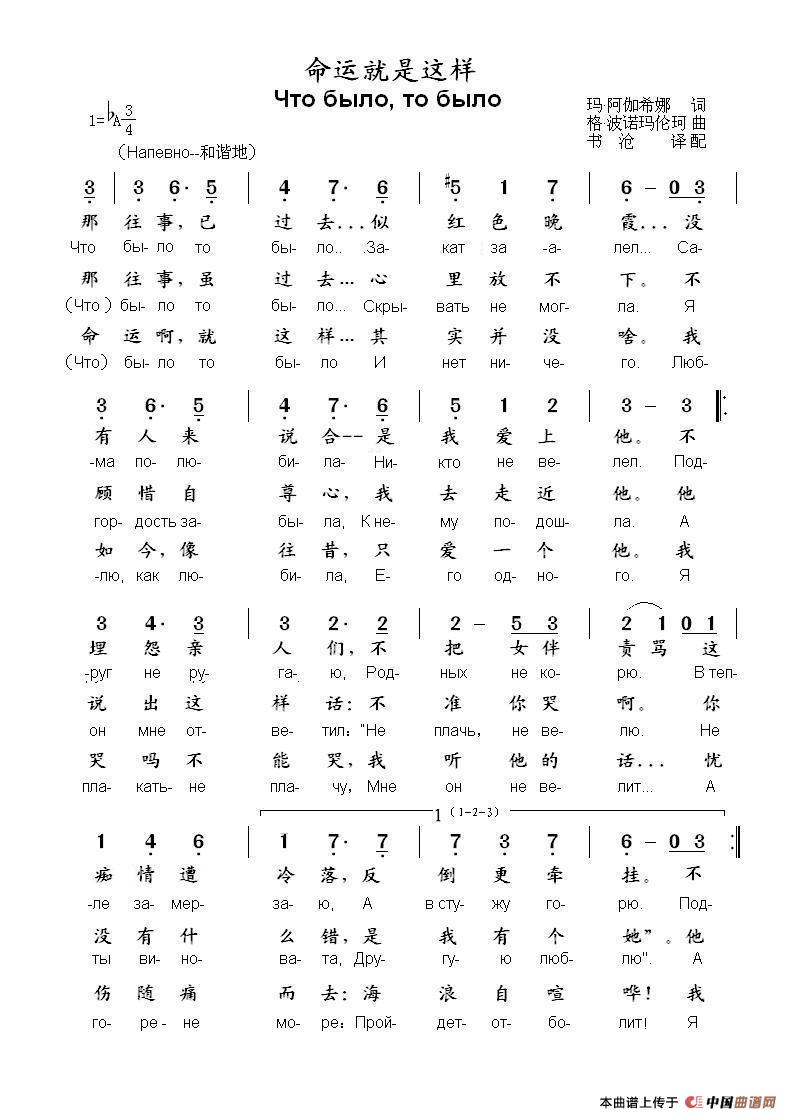 命运就是这样
Что было, то было
1=♭A 3/4
玛·阿伽希娜 词
格·波诺玛伦珂 曲
书沧 译配
(Напевно--和谐地)
3 | 3 6· 5 | 4 7· 6 | #5 1 7 | 6 – 0 3 |
那 往 事, 已 过 去... 似 红 色 晚 霞... 没
Что бы- ло то бы- ло.. За- кат за -а- лел... Са-
那 往 事, 虽 过 去... 心 里 放 不 下。 不
(Что ) бы- ло то бы- ло... Скры- вать не мог- ла. Я
命 运 啊, 就 这 样... 其 实 并 没 啥。 我
(Что) бы- ло то бы- ло И нет ни- че- го. Люб-
3 6· 5 | 4 7· 6 | 5 1 2 | 3 – 3 ‖:
有 人 来 说 合-- 是 我 爱 上 他。 不
-ма по- лю- би- ла- Ни- кто не ве- лел. Под-
顾 惜 自 尊 心, 我 去 走 近 他。 他
гор- дость за- бы- ла, К не- му по- дош- ла. А
如 今, 像 往 昔, 只 爱 一 个 他。 我
-лю, как лю- би- ла, Е- го од- но- го. Я
3 4· 3 | 3 2· 2 | 2 – 5 3 | 2 1 0 1 |
埋 怨 亲 人 们, 不 把 女 伴 责 骂 这
-руг не ру- га- ю, Род- ных не ко- рю. В теп-
说 出 这 样 话: 不 准 你 哭 啊。 你
он мне от- ве- тил: "Не плачь, не ве- лю. Не
哭 吗 不 能 哭, 我 听 他 的 话... 忧
пла- кать- не пла- чу, Мне он не ве- лит... А
1 (1-2-3)
1 4 6 | 1 7· 7 | 7 3 7 | 6 – 0 3 :‖
痴 情 遭 冷 落, 反 倒 更 牵 挂。 不
-ле за- мер- за- ю, А в сту- жу го- рю. Под-
没 有 什 么 错, 是 我 有 个 她”。 他
ты ви- но- ва- та, Дру- гу- ю люб- лю". А
伤 随 痛 而 去: 海 浪 自 喧 哗! 我
го- ре - не мо- ре: Прой- дет- от- бо- лит! Я
本曲谱上传于 中国曲谱网